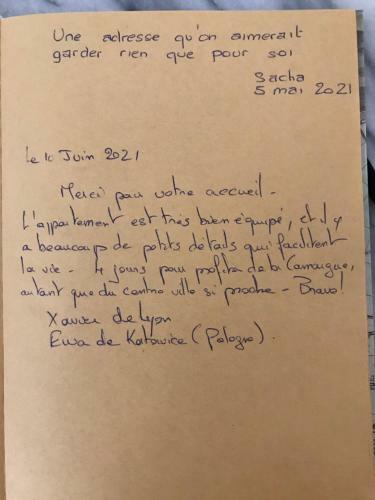 Une adresse qu'on aimerait
garder rien que pour soi
Sacha
5 mai 2021
Le 10 Juin 2021
Merci pour votre accueil -
L'appartement est très bien équipé, et il y
a beaucoup de petits détails qui facilitent
la vie - 4 jours pour profiter de la Camargue,
autant que du centre ville si proche - Bravo!
Xavier de Lyon
Ewa de Katowice (Pologne).